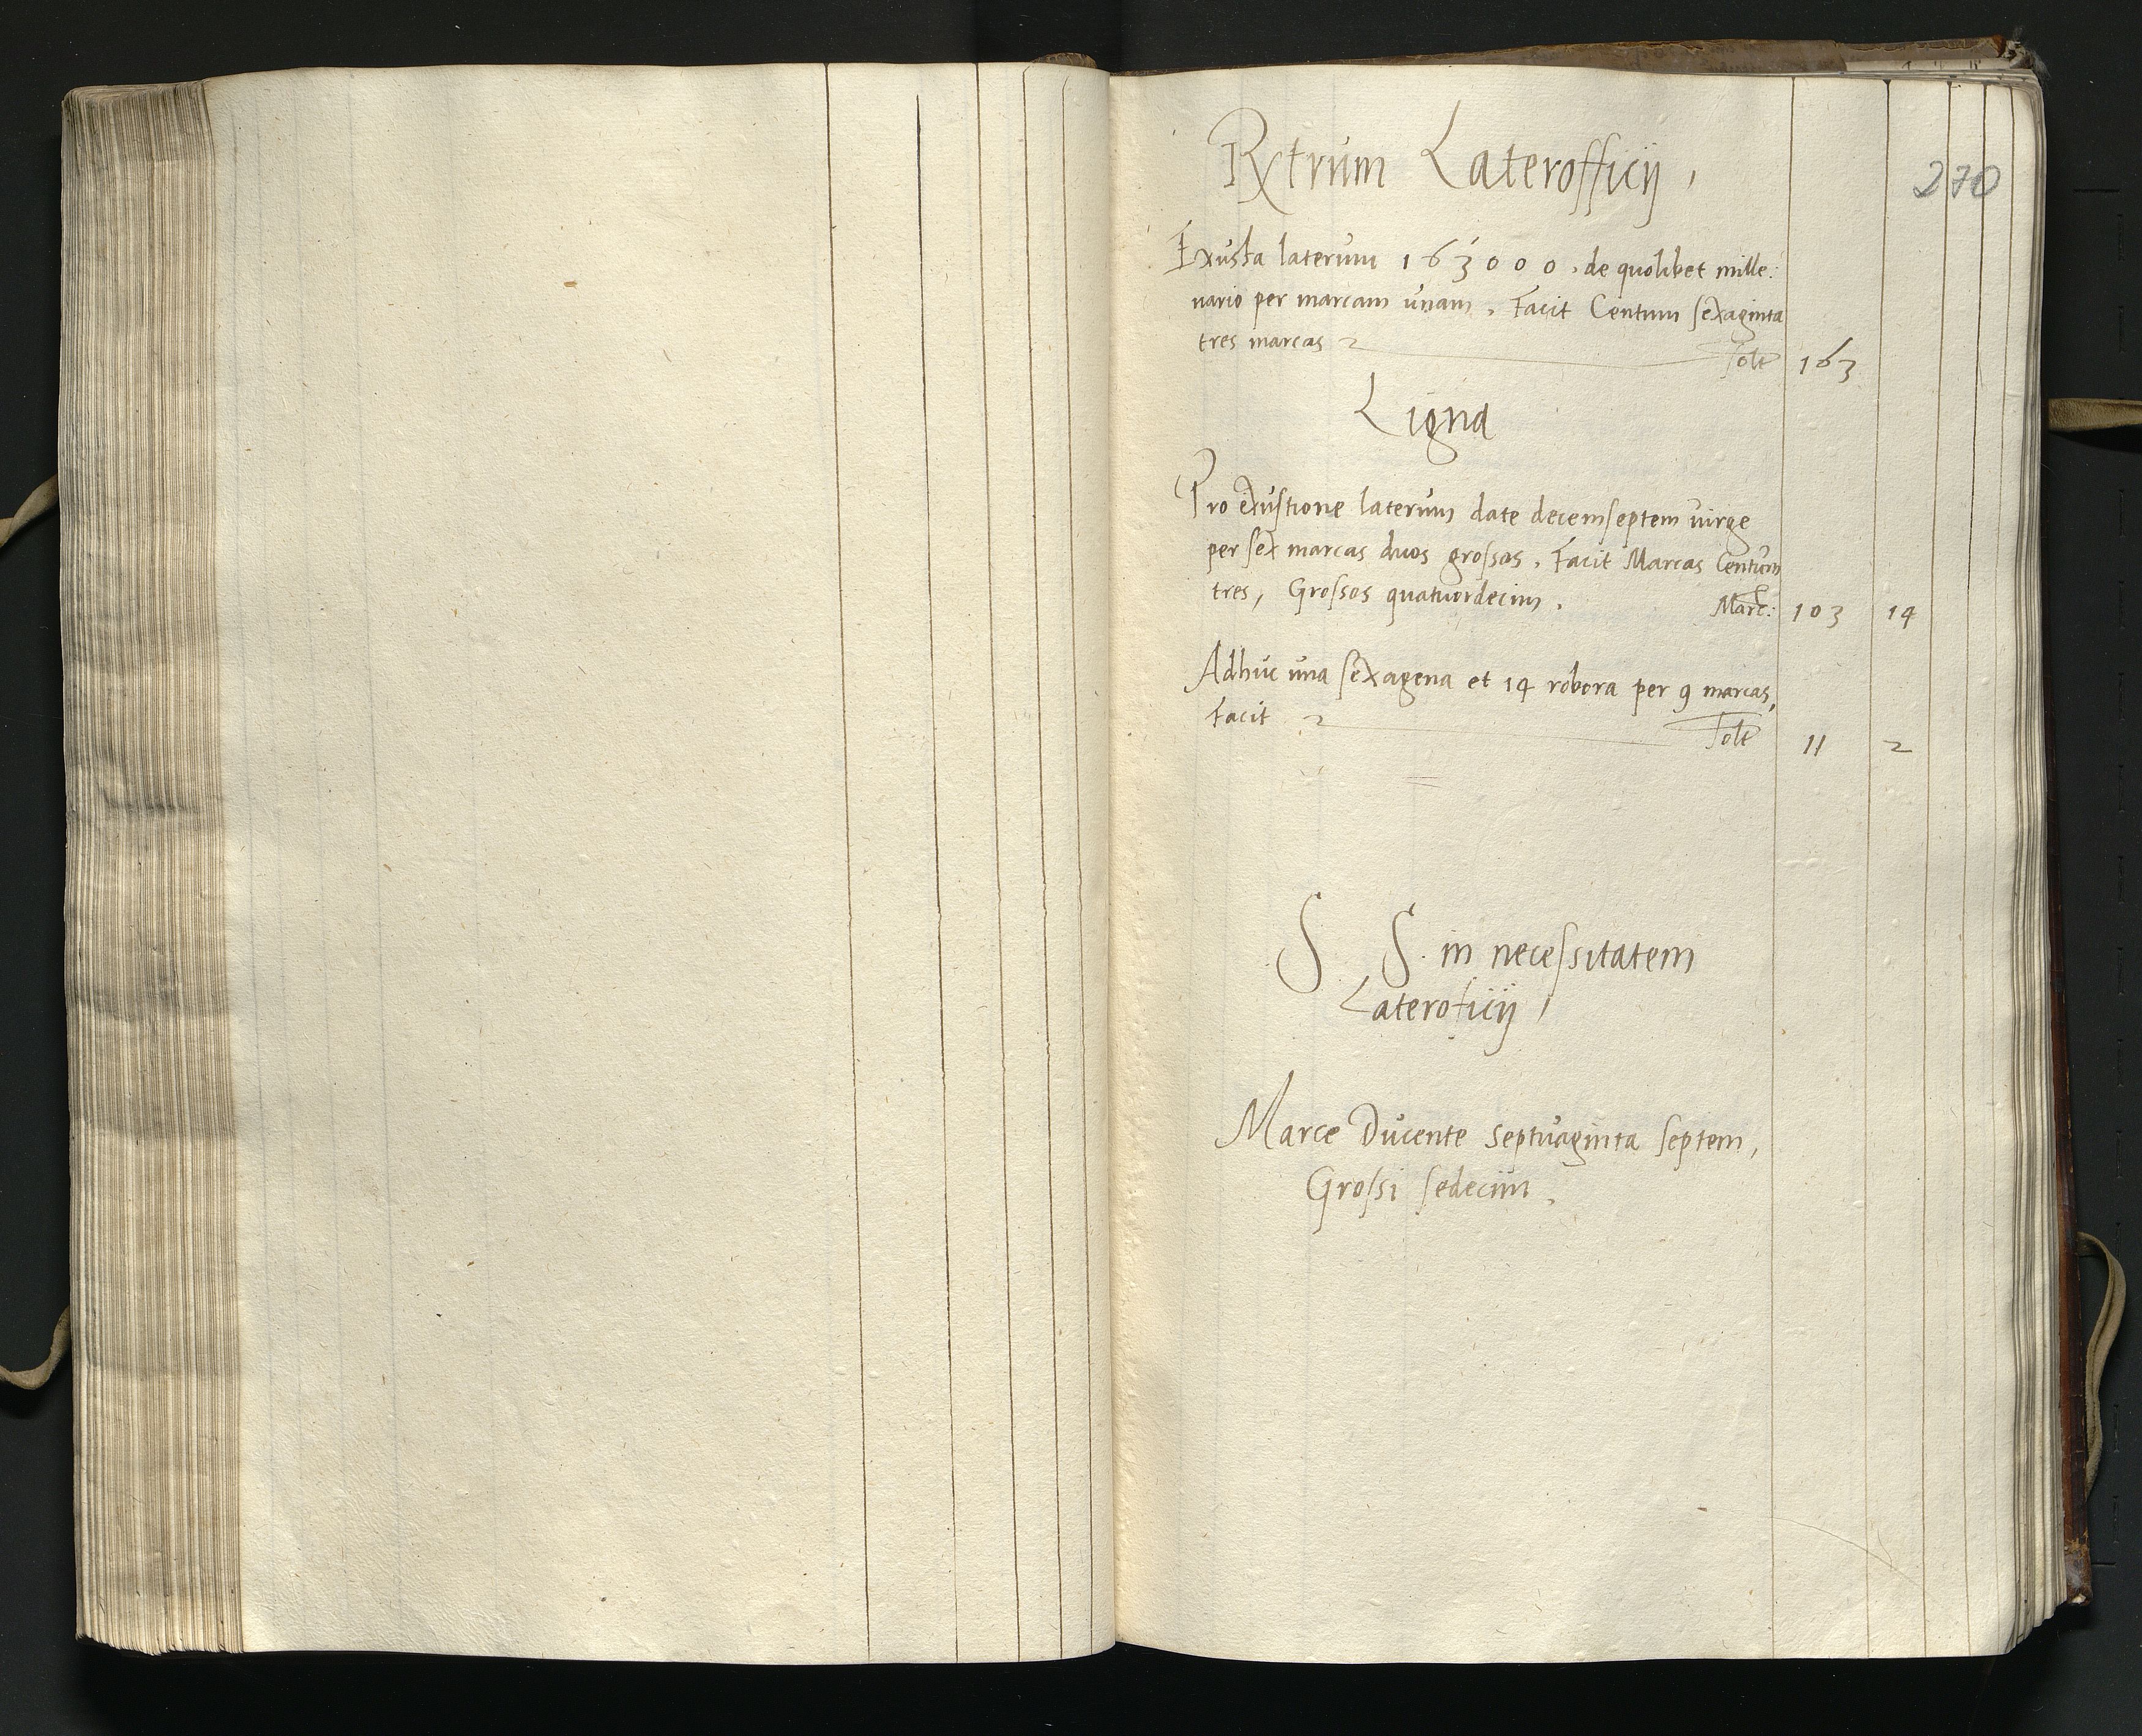 Rxtrum Laterofficij,
270
Exusta laterum 163000. de quolibet mille:
nario per marcam unam. Facit Centum sexaginta
tres marcas Solt 163
Ligna
Pro exustione laterum date decemseptem virge
per sex marcas duos grossos. Facit Marcas Centum
tres, Grossos quatuordecim. Marc: 103 14
Adhuc una sexagena et 14 robora per 9 marcas,
Facit Solt 11 2
S S. in necessitatem
Lateroficij,
Marce Ducente septuaginta septem,
Grossi sedecim.